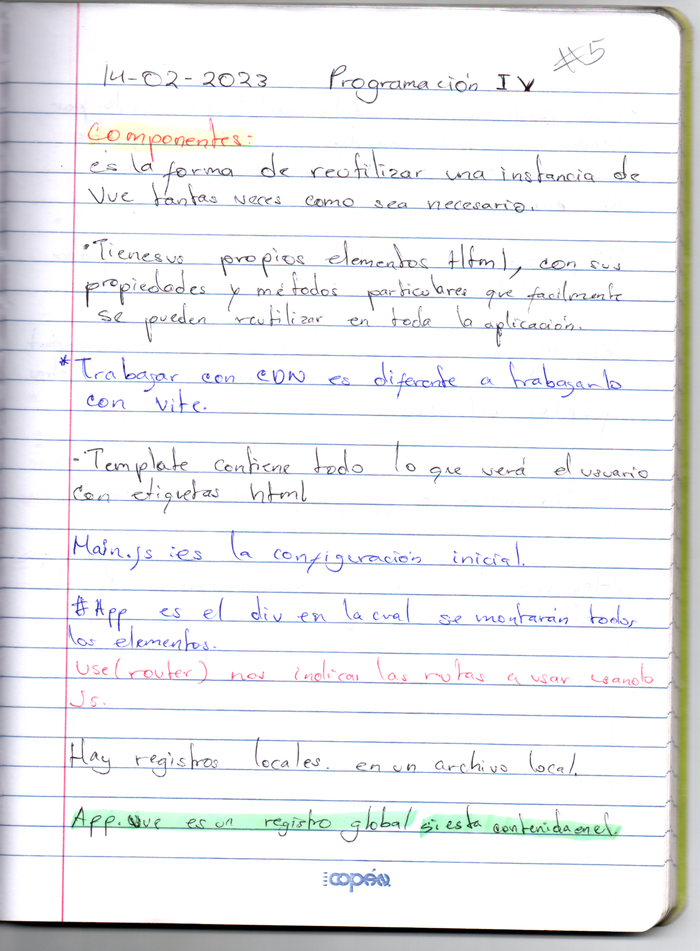 #5
14-02-2023 Programación IV
Componentes:
es la forma de reutilizar una instancia de
Vue tantas veces como sea necesario.
•Tienesus propios elementos Html, con sus
propiedades y métodos particulares que facilmente
se pueden reutilizar en toda la aplicación.
*Trabajar con CDN es diferente a trabajarlo
con Vite.
-Template contiene todo lo que verá el usuario
con etiquetas html
Main.js :es la configuración inicial.
#App es el div en la cual se montarán todos
los elementos.
use(router) nos indicar las rutas a usar usando
Js.
Hay registros locales. en un archivo local.
App.vue es un registro global si esta contenida en el.
copán